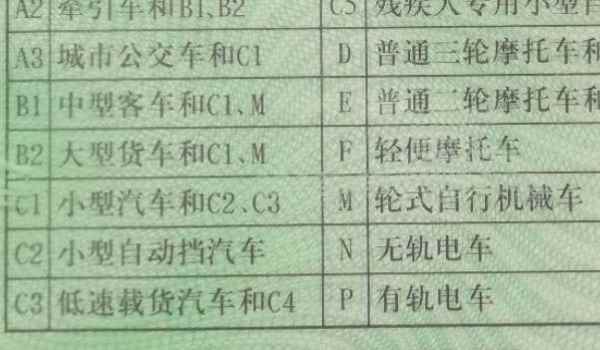 A2 牵引车和B1、B2 C5 残疾人专用小型自
A3 城市公交车和C1 D 普通三轮摩托车和
B1 中型客车和C1、M E 普通二轮摩托车和
B2 大型货车和C1、M F 轻便摩托车
C1 小型汽车和C2、C3 M 轮式自行机械车
C2 小型自动挡汽车 N 无轨电车
C3 低速载货汽车和C4 P 有轨电车